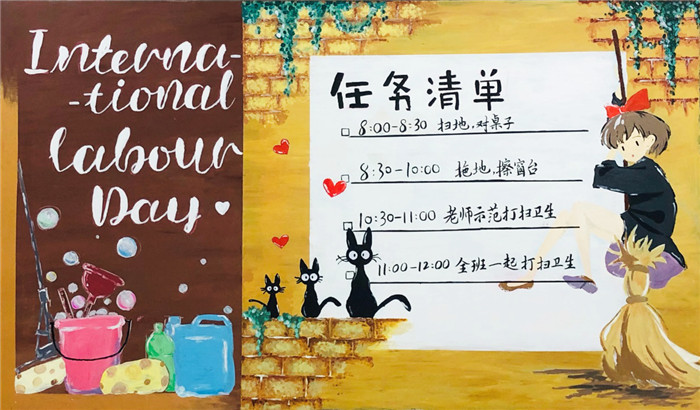 Interna-
-tional
labour
Day
任务清单
8:00-8:30 扫地,对桌子
8:30-10:00 拖地,擦窗台
10:30-11:00 老师示范打扫卫生
11:00-12:00 全班一起打扫卫生